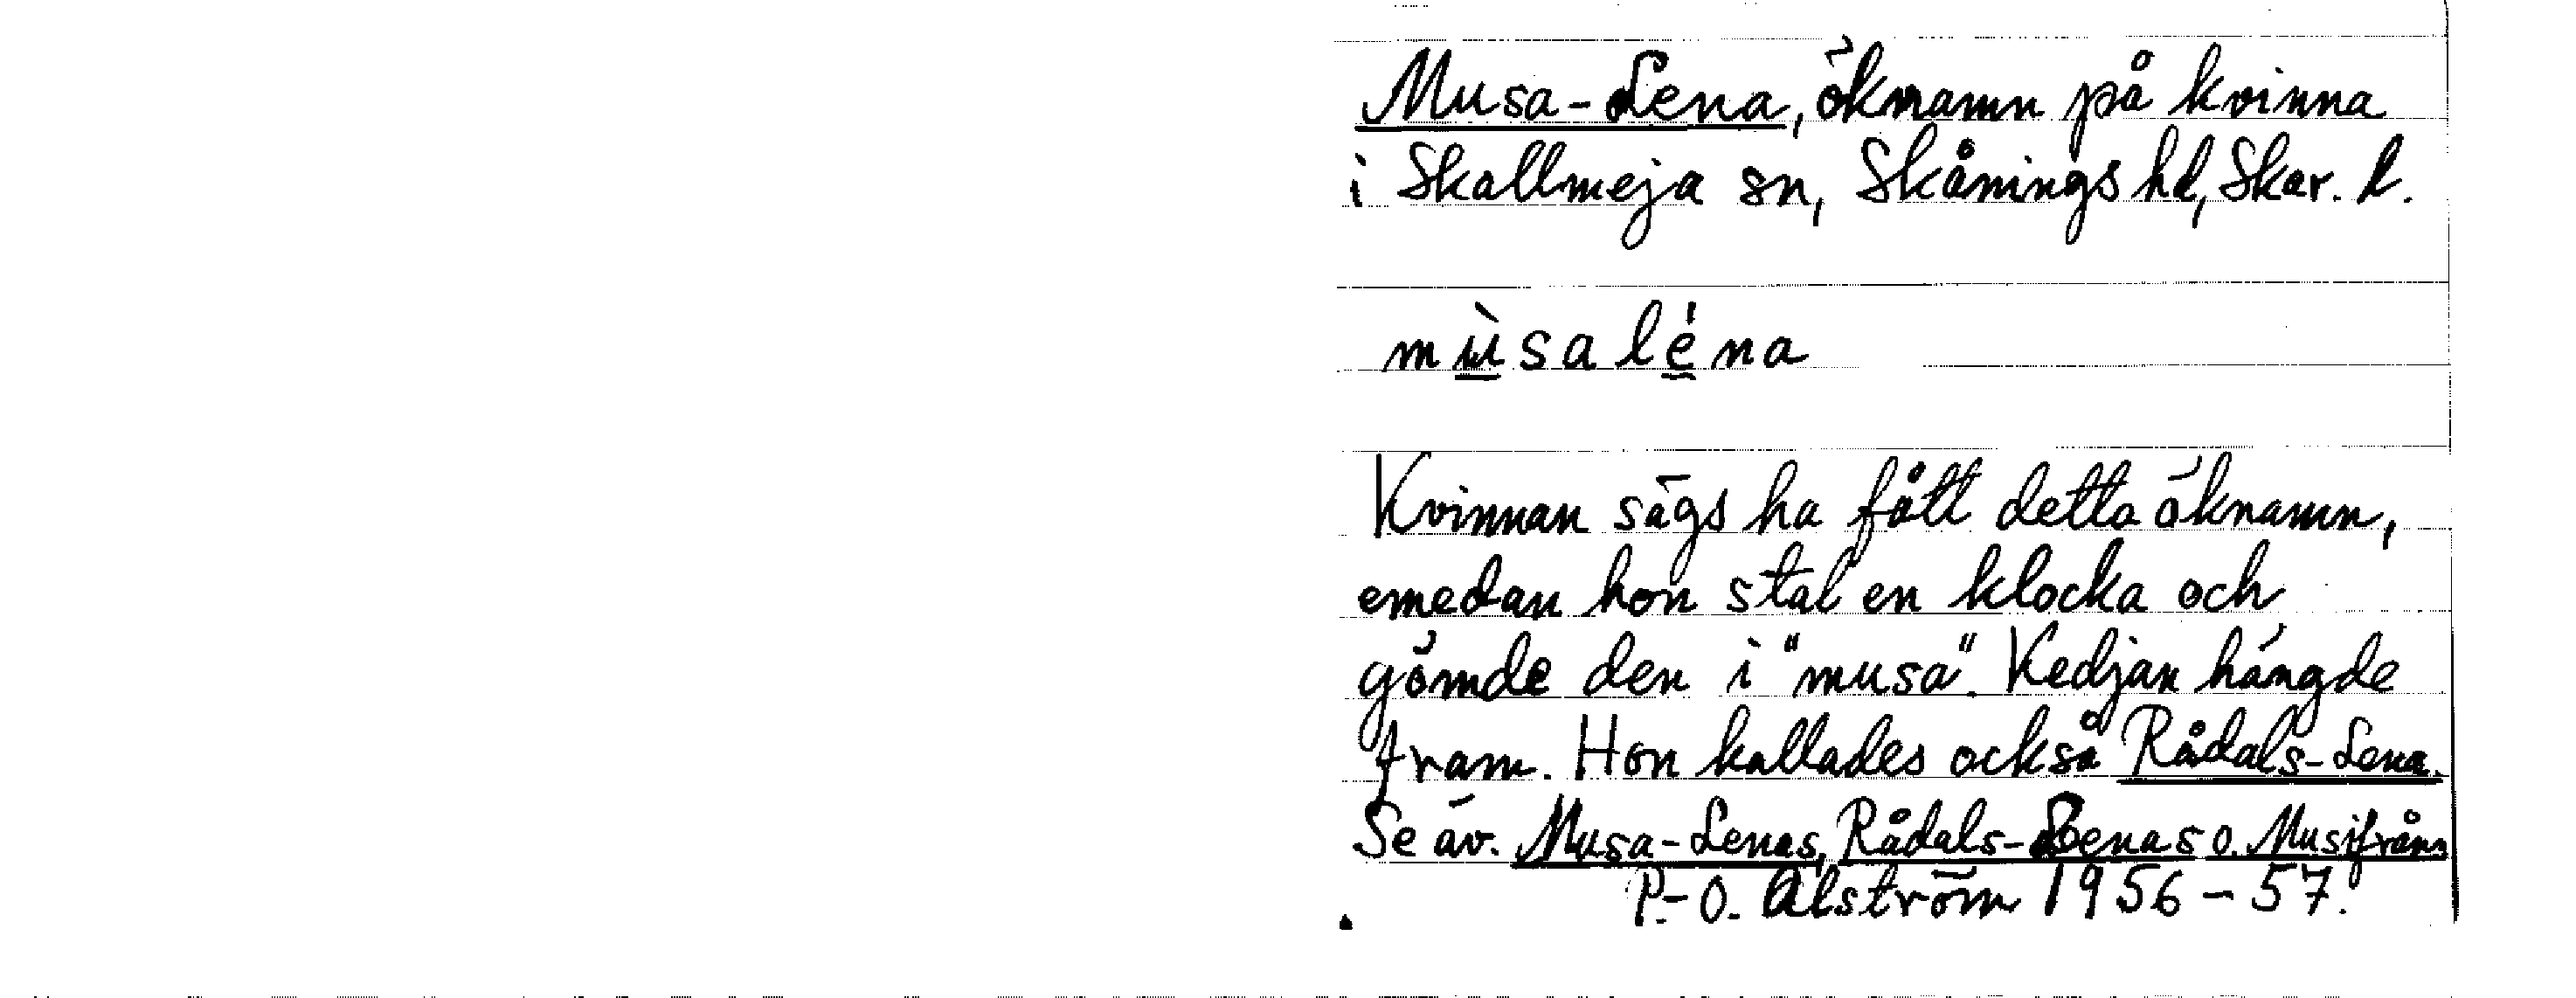 Musa-Lena, öknamn på kvinna
i Skallmeja sn, Skånings hd, Skar. l.
mùsaléna
Kvinnan sägs ha fått detta öknamn,
emedan hon stal en klocka och
gömde den i "musa". Kedjan hängde
fram. Hon kallades också Rådals-Lena.
Se äv. Musa-Lenas, Rådals-Lenas o. Musifråns
P.-O. Alström 1956-57.